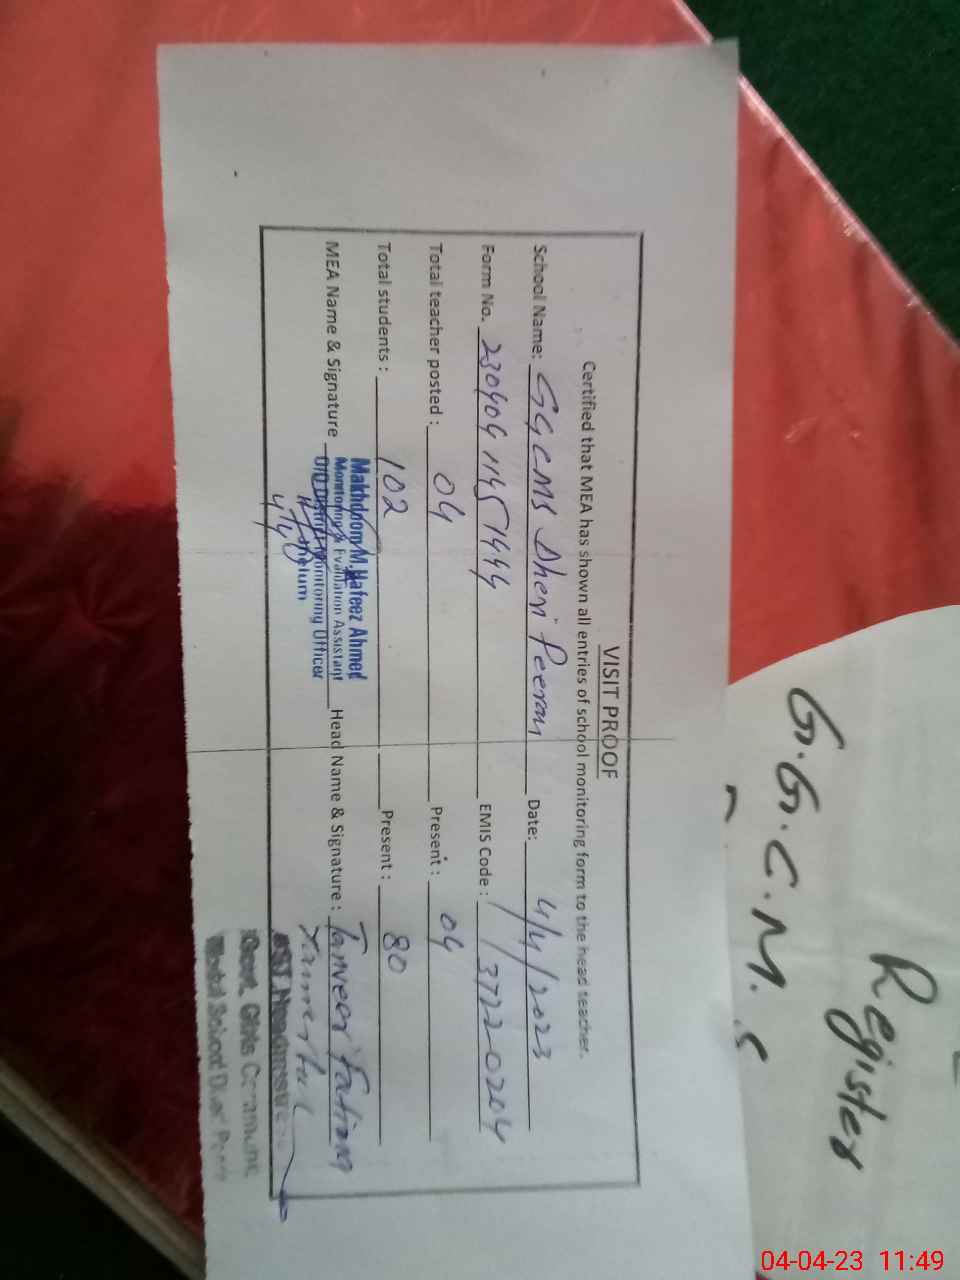 VISIT PROOF
Certified that MEA has shown all entries of school monitoring form to the head teacher.
School Name: GGCMS Dheri Peeran Date: 4/4/2023
Form No. 230404 1145 1444 EMIS Code: 37220204
Total teacher posted: 04 Present: 04
Total students: 102 Present: 80
MEA Name & Signature Head Name & Signature: Tanveer Fatima
Makhdoom M. Hafeez Ahmed
Monitoring & Evaluation Assistant
O/O District Monitoring Officer
Jhelum
Govt. Girls
Register
G.G.C.M.S
04-04-23 11:49